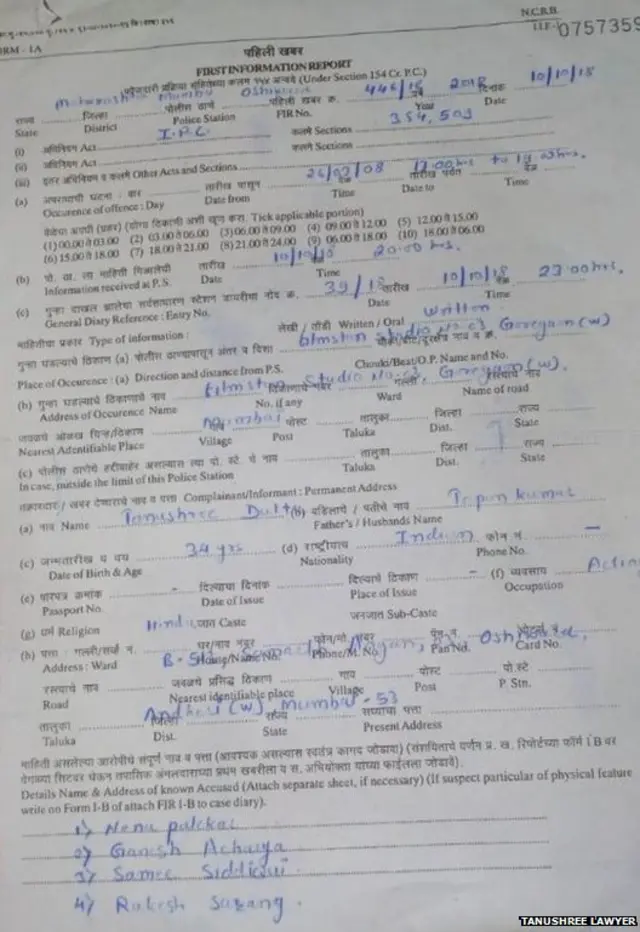 N.C.R.B.
I.I.F- 0757359
FORM - 1A
पहिली खबर
FIRST INFORMATION REPORT
(फौजदारी प्रक्रिया संहितेच्या कलम १५४ अन्वये) (Under Section 154 Cr. P.C.)
Maharashtra Mumbai Oshiwara 446/18 2018 10/10/18
राज्य जिल्हा पोलीस ठाणे पहिली खबर क्र. दिनांक
State District Police Station FIR No. Year Date
(i) अधिनियम Act I.P.C. कलमे Sections 354, 509
(ii) अधिनियम Act कलमे Sections
(iii) इतर अधिनियम व कलमे Other Acts and Sections
(a) अपराधाची घटना : वार तारीख पासून 26/03/08 17:00 hrs तारीख पर्यंत
Occurence of offence : Day Date from Time Date to Time
(योग्य ठिकाणी अशी खूण करा. Tick applicable portion)
(1) 00.00 ते 03.00 (2) 03.00 ते 06.00 (3) 06.00 ते 09.00 (4) 09.00 ते 12.00 (5) 12.00 ते 15.00
(6) 15.00 ते 18.00 (7) 18.00 ते 21.00 (8) 21.00 ते 24.00 (9) 06.00 ते 18.00 (10) 18.00 ते 06.00
(b) पो. ठा. ला माहिती मिळालेची तारीख 10/10/18 20:00 hrs.
Information received at P.S. Date Time
(c) गुन्हा दाखल झालेचा स्टेशन डायरीचा नोंद क्र. 39/18 तारीख 10/10/18 23:00 hrs.
General Diary Reference : Entry No. Date Time
माहितीचा प्रकार Type of information : लेखी / तोंडी Written / Oral Written
गुन्हा घडल्याचे ठिकाण (a) पोलीस ठाण्यापासून अंतर व दिशा studio No. c3, Goregaon (w)
Place of Occurence : (a) Direction and distance from P.S. Chouki/Beat/O.P. Name and No.
(b) गुन्हा घडल्याचे ठिकाणाचे नाव Filmstan Studio No. c3, Goregaon (w).
Address of Occurence Name No. if any Ward Name of road
जवळचे ओळख चिन्ह/ठिकाण Mumbai पोस्ट तालुका जिल्हा राज्य
Nearest Adentifiable Place Village Post Taluka Dist. State
(c) पोलीस ठाणेचे हद्दीबाहेर असल्यास त्या पो. स्टे. चे नाव तालुका जिल्हा राज्य
In case, outside the limit of this Police Station Taluka Dist. State
तक्रारदार / खबर देणाराचे नाव व पत्ता Complainant/Informant : Permanent Address
(a) नाव Name Tanushree Dutta (b) वडिलांचे / पतीचे नाव Tapan kumar
Father's / Husbands Name
(c) जन्मतारीख व वय 34 yrs (d) राष्ट्रीयत्व Indian फोन नं. –
Date of Birth & Age Nationality Phone No.
(e) पारपत्र क्रमांक - दिल्याचा दिनांक दिल्याचे ठिकाण - (f) व्यवसाय
Passport No. Date of Issue Place of Issue Occupation
(g) धर्म Religion Hindu जात Caste जनजात Sub-Caste
(h) पत्ता : घर/नाव नंबर फोन/मो. नंबर पॅन नं. Oshiwara,
Address : Ward House/Name No. Phone/M. No. Pan No. Card No.
रस्त्याचे नाव जवळचे प्रसिद्ध ठिकाण गाव पोस्ट पो.स्टे.
Road Nearest identifiable place Village Post P. Stn.
तालुका Andheri (W), Mumbai - 53 राज्य सध्याचा पत्ता
Taluka Dist. State Present Address
माहिती असलेल्या आरोपीचे संपूर्ण नाव व पत्ता (आवश्यक असल्यास स्वतंत्र कागद जोडावा)
Details Name & Address of known Accused (Attach separate sheet, if necessary) (If suspect particular of physical feature
write on Form I-B of attach FIR I-B to case diary).
1) Nana patekar
2) Ganesh Acharya
3) Samee Siddiqui
4) Rakesh Sarang.
TANUSHREE LAWYER